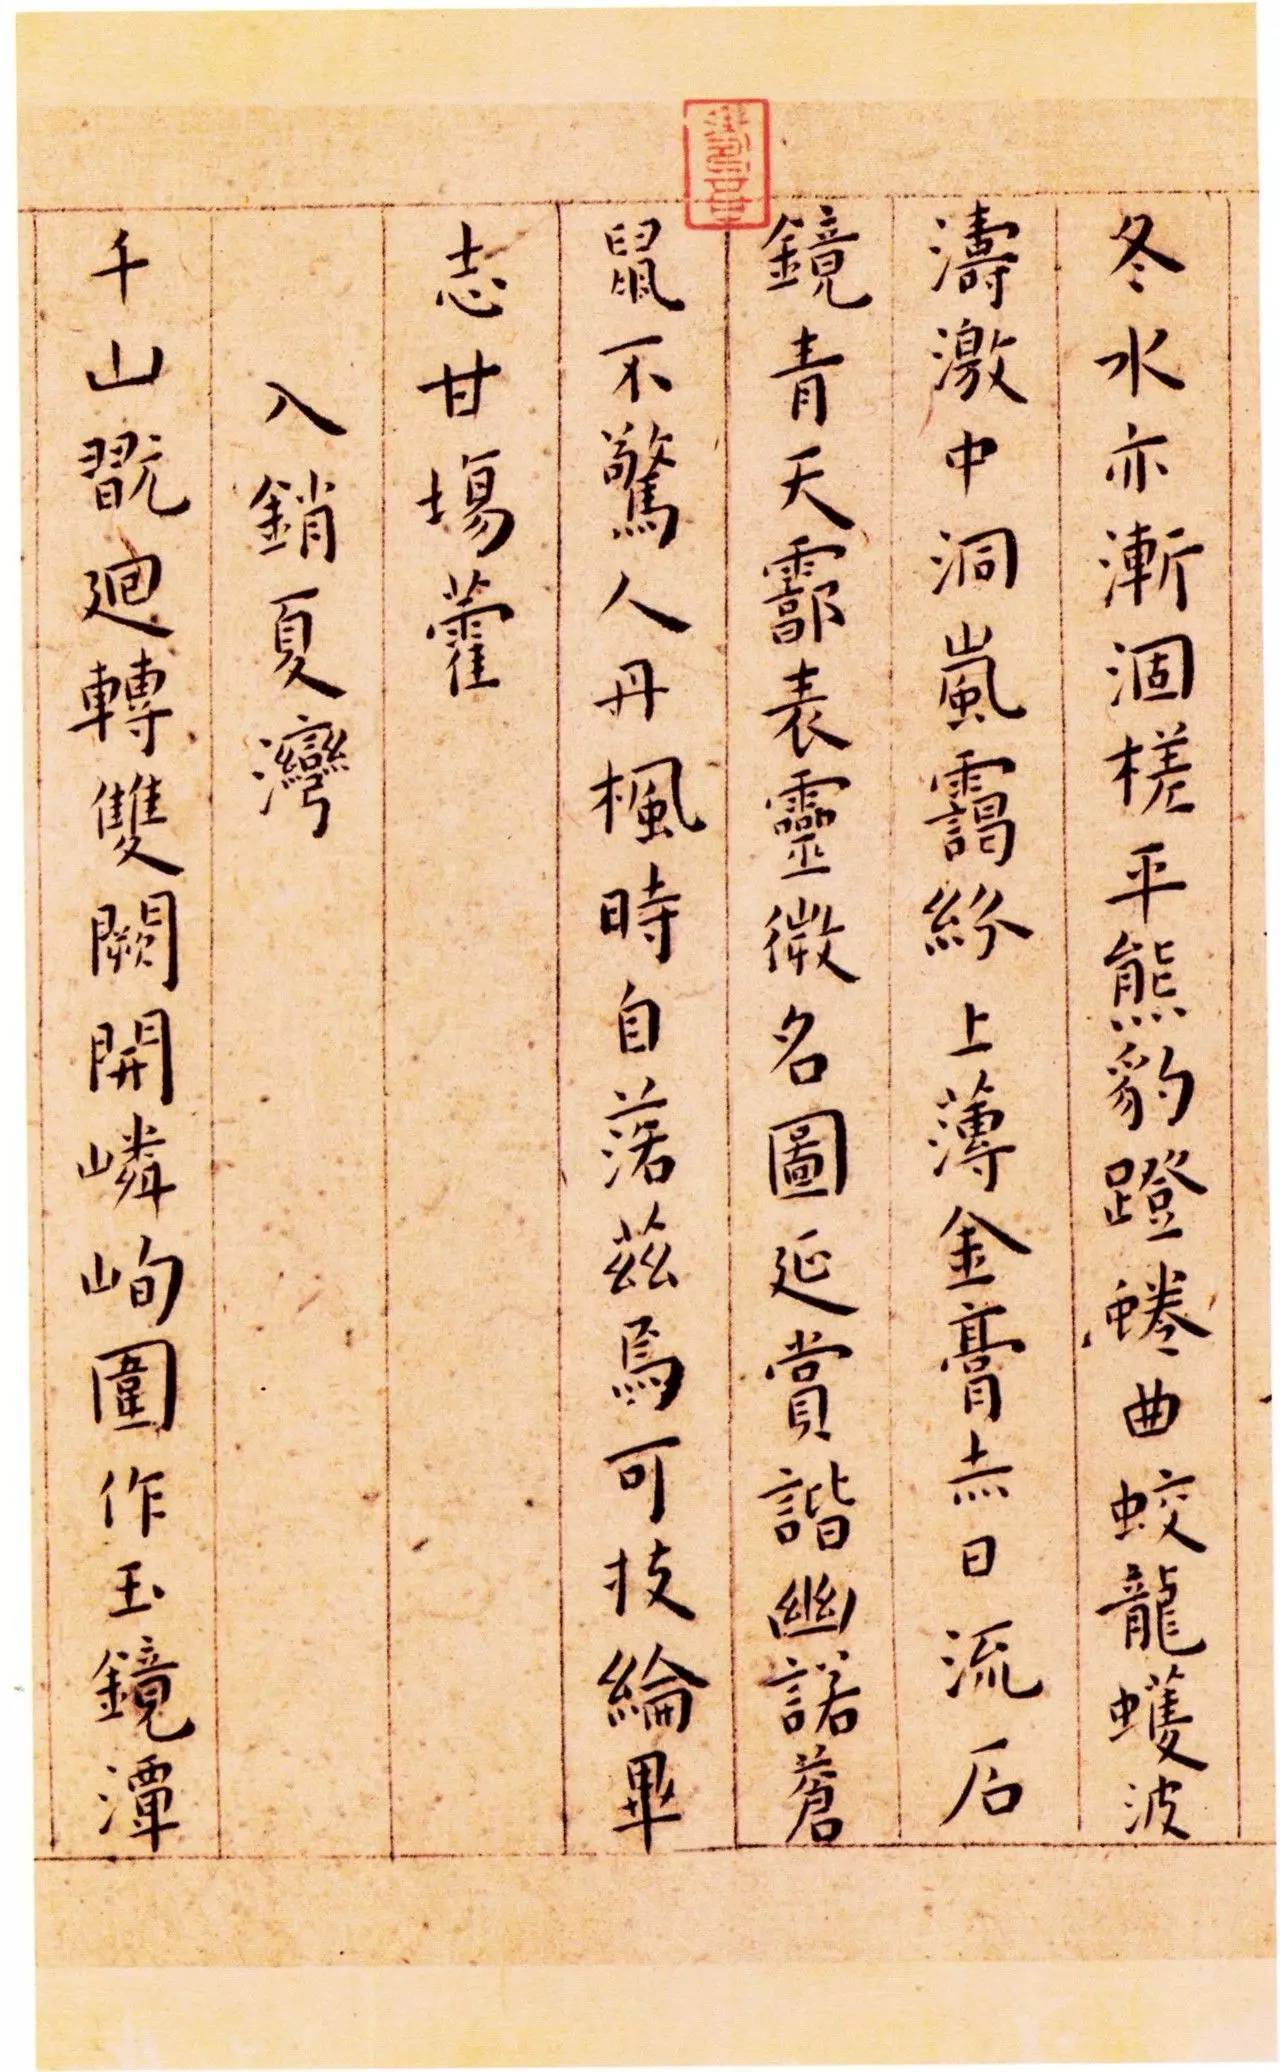 冬水亦漸涸槎平熊豹蹬蜷曲蛟龍蠖波
濤激中洞嵐靄紛上薄金膏赤日流石
鏡青天霩表靈徵名圖延賞諧幽諾蒼
鼠不驚人丹楓時自落茲焉可投綸畢
志甘場藿
入銷夏灣
千山翫迴轉雙闕開嶙峋圍作玉鏡潭